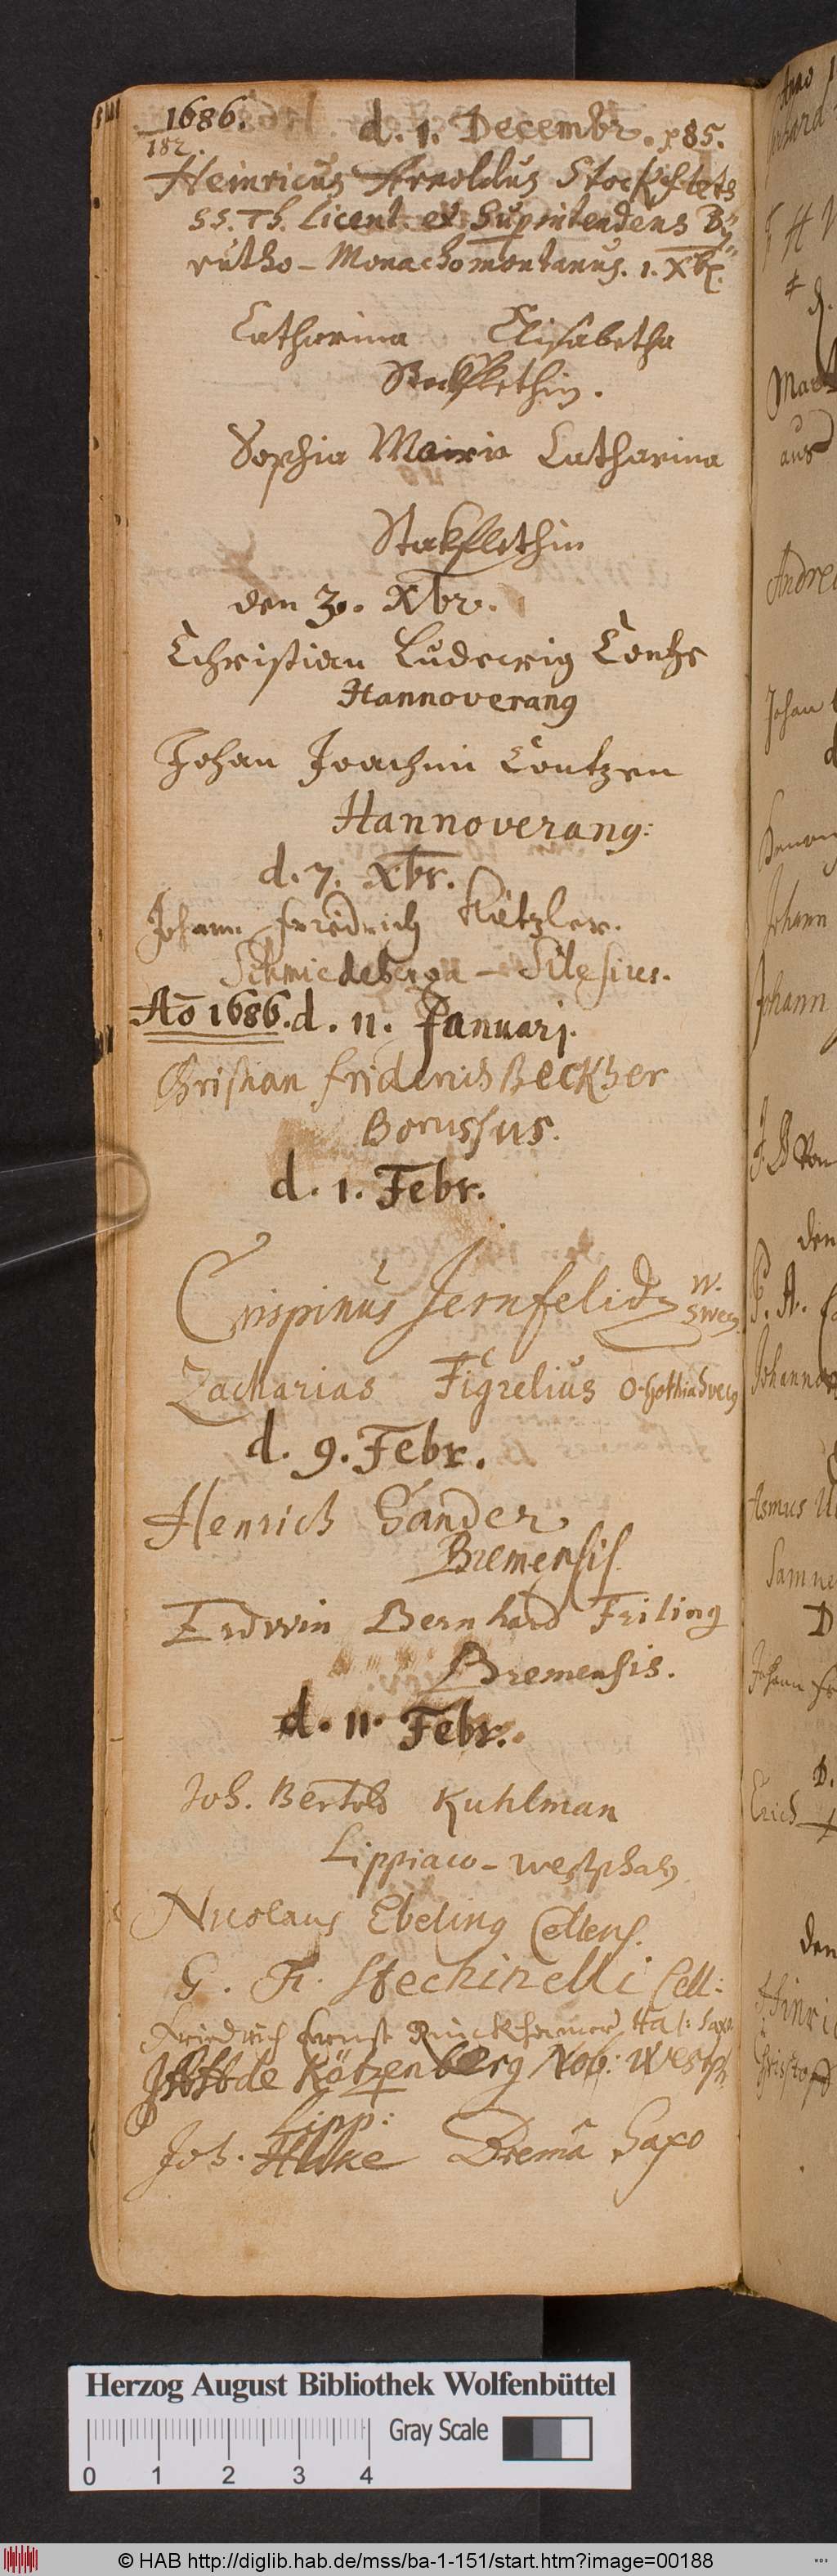 1686.
182.
d. 1. Decembr. 85.
Heinricus Arnoldus Stockfleth
SS. Th. Licent. et Suprintendens By
rutho - Monachomontanus. 1. Xbr.
Catharina Elisabetha
Stockflethin.
Sophia Maria Catharina
Stokflethin
den 3. Xbr.
Christian Ludewig Contze
Hannoveranq
Johan Joachim Contzen
Hannoveranq:
d. 7. Xbr.
Johann Friedrich Kützler.
Schmiedeberga - Silesius.
Aō 1686. d. 11. Januarj.
Christian Friderich Beckher
Borussus.
d. 1. Febr.
Crispinus Jernfeld W.
Svec.
Zacharias Figrelius O-Gothia Svecq
d. 9. Febr.
Henrich Sander
Bremensis.
Erdwin Bernhard Friling
Bremensis.
d. 11. Febr.
Joh. Bertold Kuhlman
Lippiaco - Westphalq
Nicolaus Ebeling Cellens.
G. F. Stechinelli Cell:
Friedrich Ernst Hal: Saxo
de Kötzenberg Nob: Westph.
Lipp:
Joh. Hake Brema Saxo
Herzog August Bibliothek Wolfenbüttel
Gray Scale
0 1 2 3 4
© HAB http://diglib.hab.de/mss/ba-1-151/start.htm?image=00188